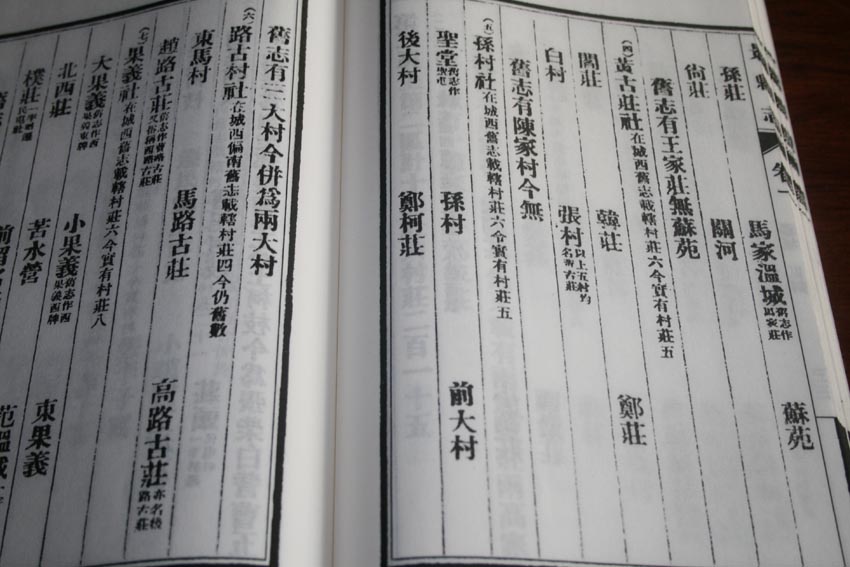 縣志 卷一
孫莊 馬家溫城舊志作馬家莊 蘇苑
尙莊 關河
舊志有王家莊無蘇苑
(四)萬古莊社在城西舊志載轄村莊六今實有村莊五
閻莊 韓莊 鄭莊
白村 張村以上五村均名萬古莊
舊志有陳家村今無
(五)孫村社在城西舊志載轄村莊六今實有村莊五
聖堂舊志作聖屯 孫村 前大村
後大村 鄭柯莊
舊志有三大村今併爲兩大村
(六)路古村社在城西偏南舊志載轄村莊四今仍舊數
東馬村 馬路古莊 高路古莊亦名後路古莊
趙路古莊舊志作曹路古莊又俗稱西路古莊
(七)果義社在城西舊志載轄村莊六今實有村莊八
大果義舊志作西果東牌 小果義舊志作西果義西牌 東果義
北西莊 苦水營 范溫城
樸莊